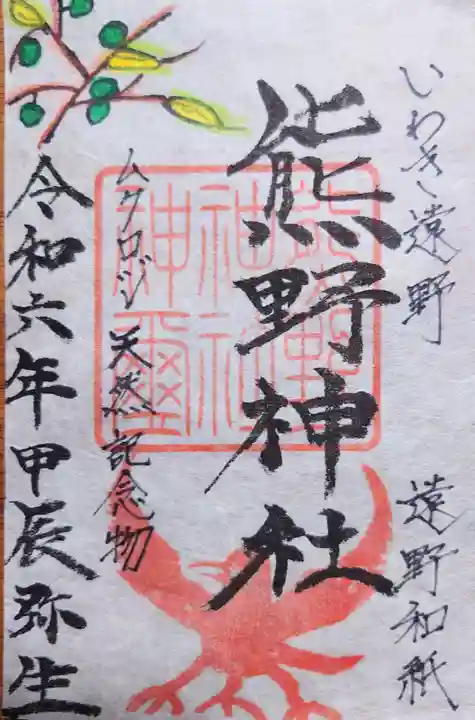 いわき遠野
遠野和紙
熊野神社
熊野
神社
神璽
ムクロジ天然記念物
令和六年甲辰弥生